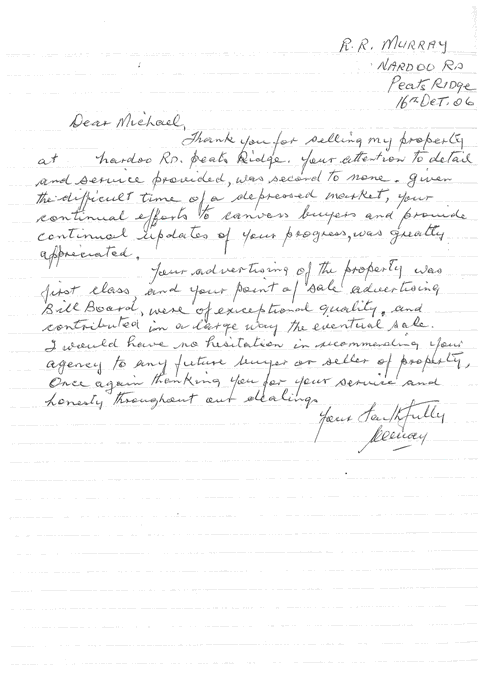 R. R. MURRAY
NARDOO RD
Peats RIDGE
16TH OCT. 06
Dear Michael,
Thank you for selling my property
at nardoo RD. peats Ridge. Your attention to detail
and service provided, was second to none. Given
the difficult time of a depressed market, your
continual efforts to canvass buyers and provide
continual updates of your progress, was greatly
appriciated.
Your advertising of the property was
first class and your point of sale advertising
Bill Board, were of exceptional quality, and
contributed in a large way the eventual sale.
I would have no hesitation in recommending your
agency to any future buyer or seller of property,
Once again thanking you for your service and
honesty throughout our dealings
Yours faithfully